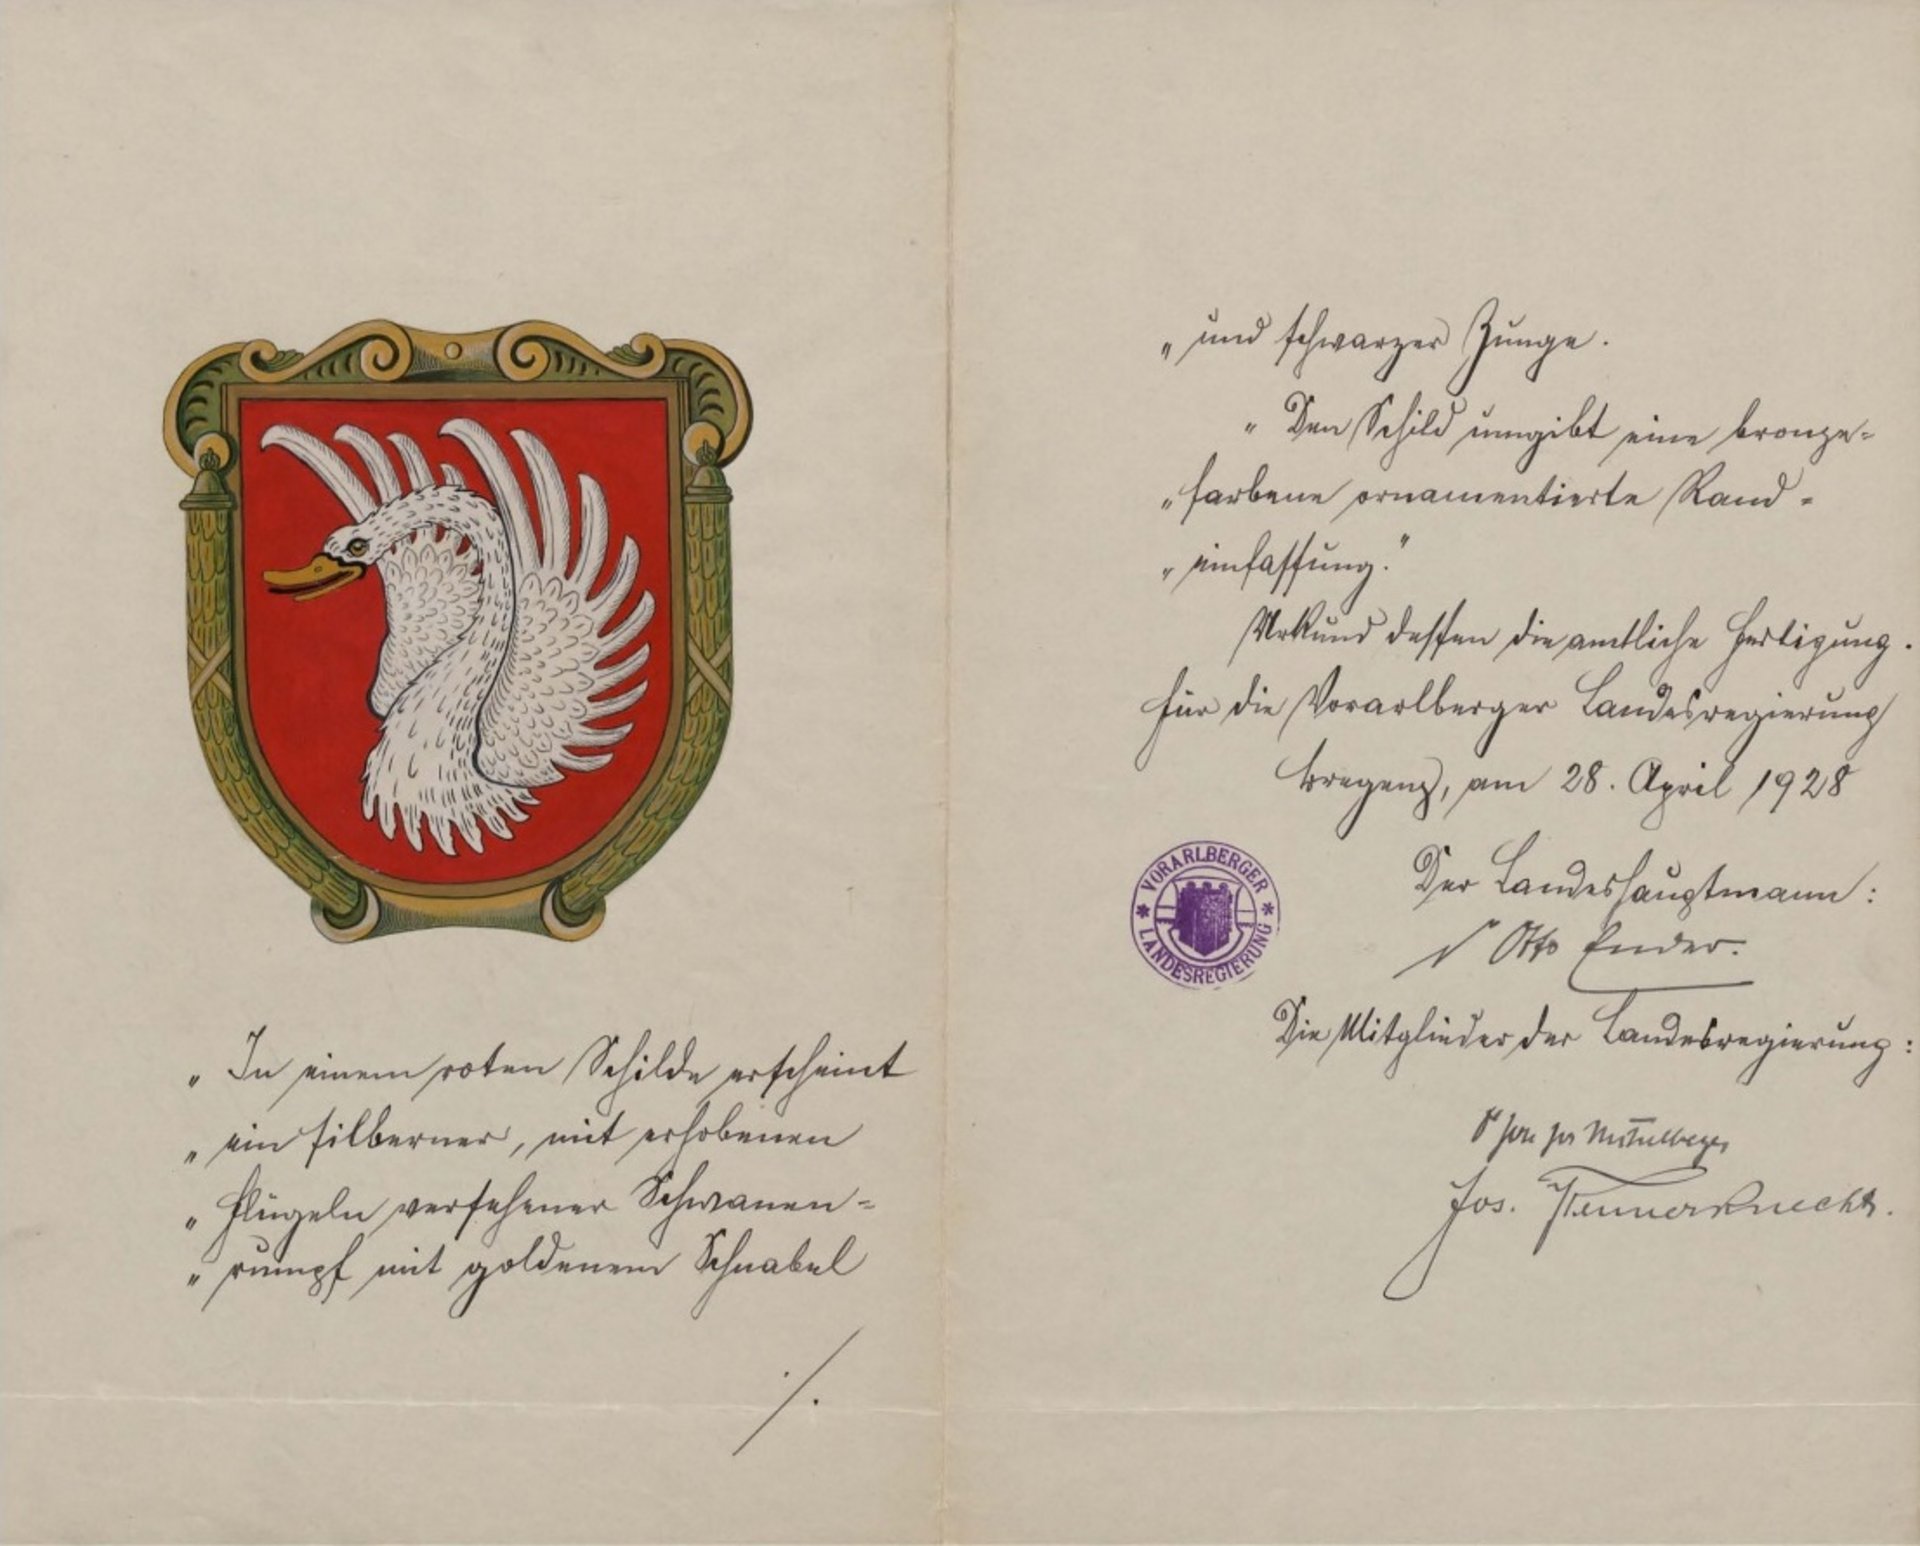 „ In einem roten Schilde erscheint
„ ein silberner, mit erhobenen
„ Flügeln versehener Schwanen=
„ rumpf mit goldenem Schnabel
./.
„ und schwarzer Zunge.
„ Den Schild umgibt eine bronze=
„ farbene ornamentierte Rand=
„ einfassung."
Urkund dessen die amtliche Fertigung.
Für die Vorarlberger Landesregierung
Bregenz, am 28. April 1928
VORARLBERGER
* LANDESREGIERUNG *
Der Landeshauptmann:
Otto Ender.
Die Mitglieder der Landesregierung:
Mittelberger
Jos.